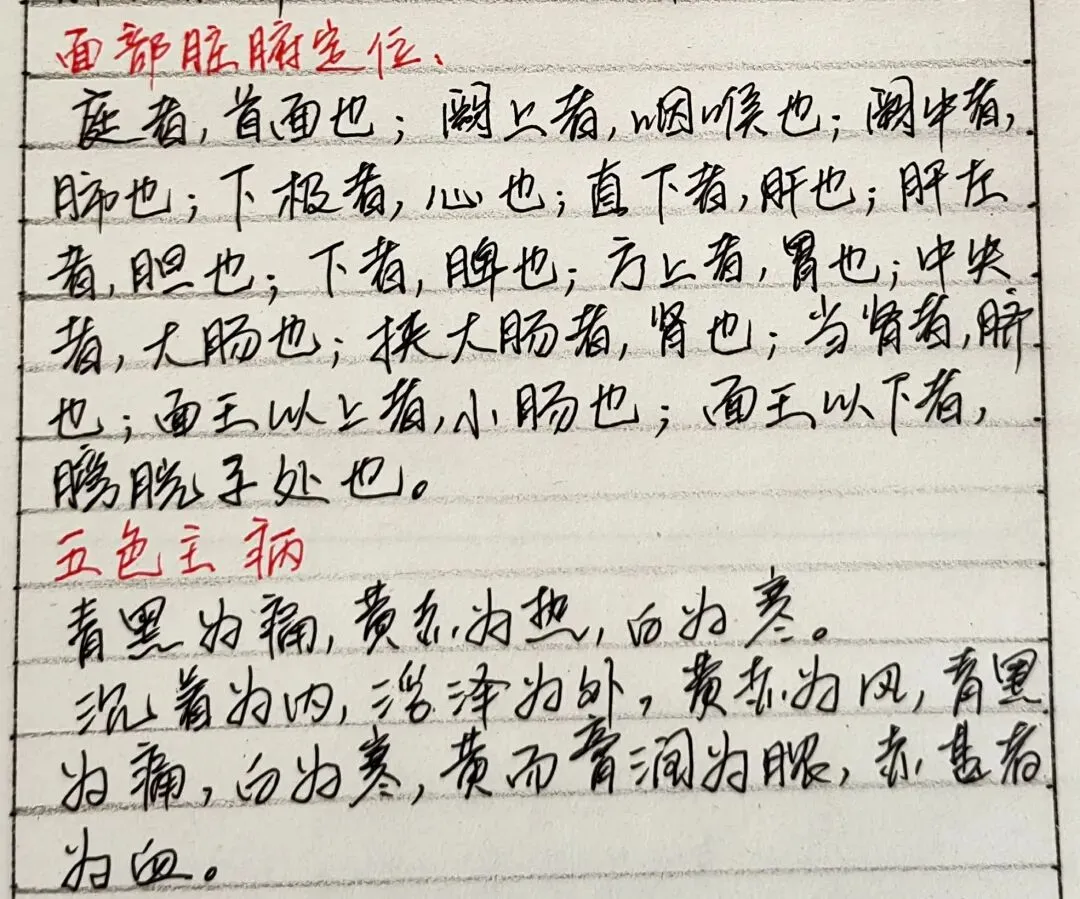 面部脏腑定位、
庭者,首面也;阙上者,咽喉也;阙中者,
肺也;下极者,心也;直下者,肝也;肝左
者,胆也;下者,脾也;方上者,胃也;中央
者,大肠也;挟大肠者,肾也;当肾者,脐
也;面王以上者,小肠也;面王以下者,
膀胱子处也。
五色主病
青黑为痛,黄赤为热,白为寒。
沉着为内,浮泽为外,黄赤为风,青黑
为痛,白为寒,黄而膏润为脓,赤甚者
为血。